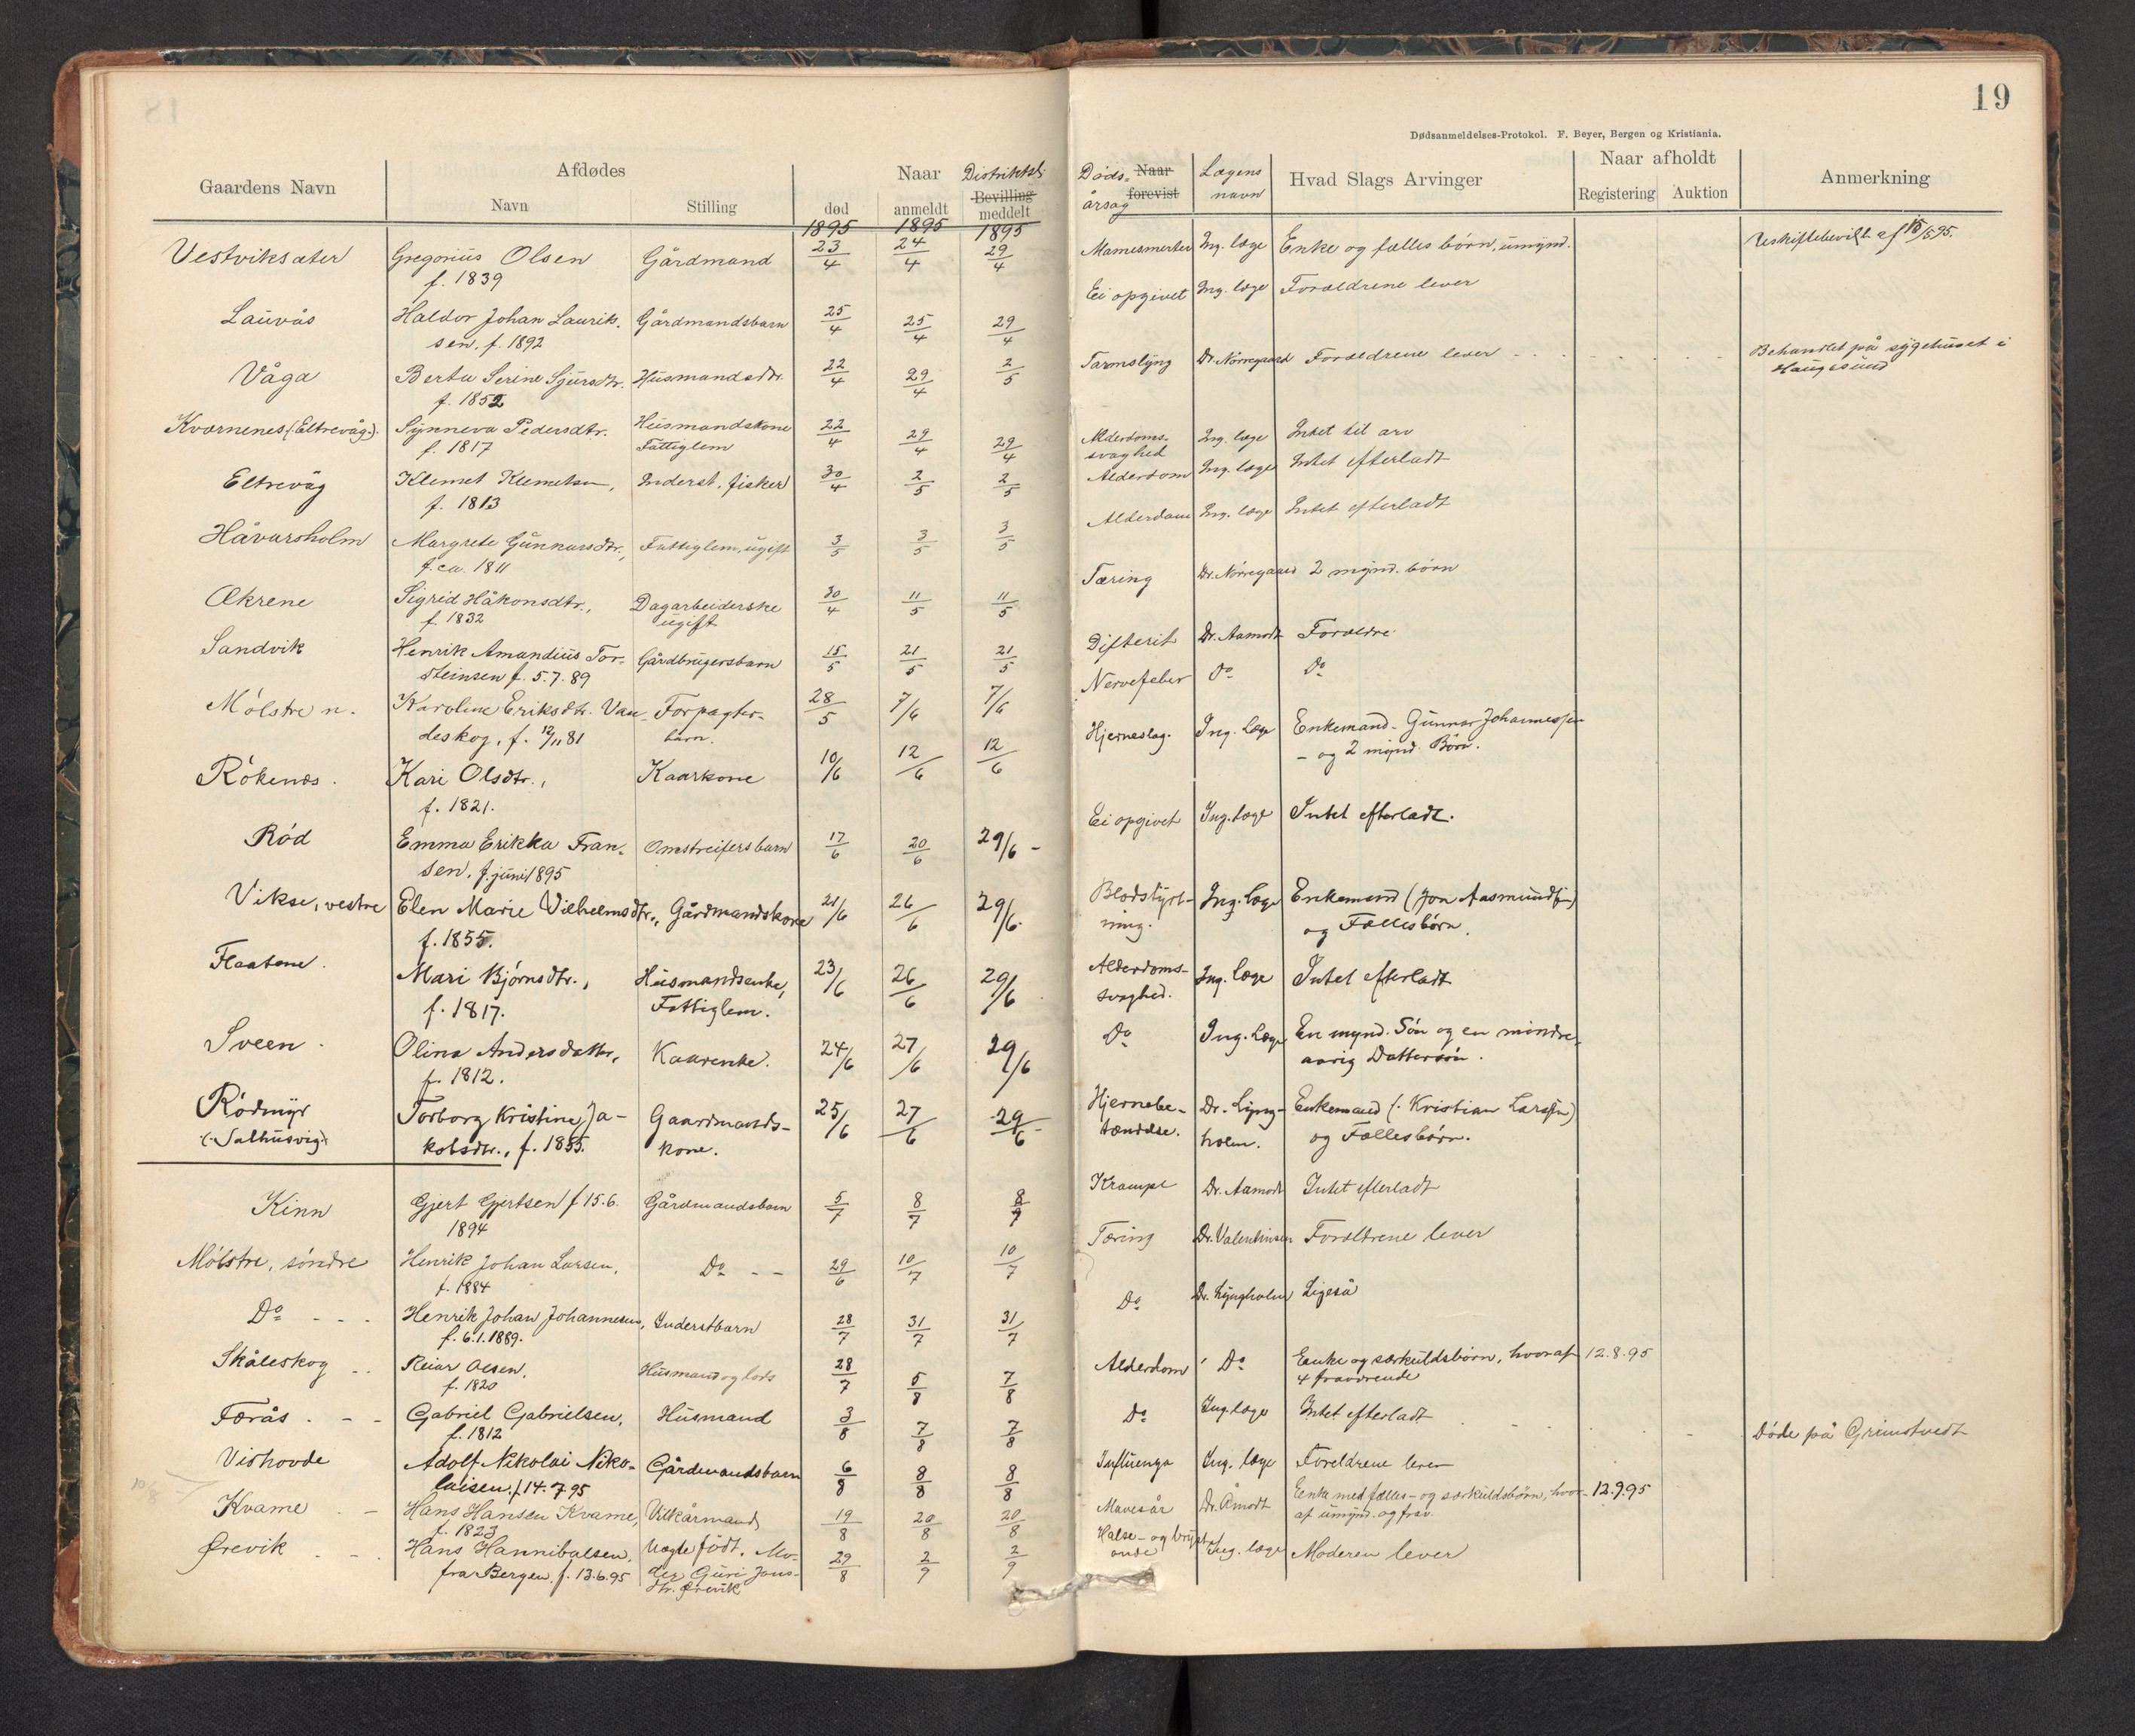 19
Dødsanmeldelses-Protokol. F. Beyer, Bergen og Kristiania.
Gaardens Navn
Afdødes
Navn
Stilling
Naar
død
anmeldt
Distriktsl.
Bevilling
meddelt
Døds-
årsag
Naar
forevist
Lægens
navn
Hvad Slags Arvinger
Naar afholdt
Registering
Auktion
Anmerkning
1895 1895 1895
Vestviksæter Gregorius Olsen Gårdmand 23/4 24/4 29/4 Ing. læge Enke og fælles børn, umynd. af 15/5 95.
f. 1839
Lauvås Haldor Johan Laurits- Gårdmandsbarn 25/4 25/4 29/4 Ei opgivet Ing. læge Forældrene lever
sen, f. 1892
Våga Berta Serine Sjursdtr. Husmandsdtr. 22/4 29/4 2/5 Tarmslyng Dr. Nørregaard Forældrene lever Behandlet på sygehuset i
f. 1852 Haugesund
Kvernenes (Eltrevåg). Synneva Pedersdtr. Husmandskone 22/4 29/4 29/4 Alderdoms- Ing. læge Intet til arv
f. 1817 Fattiglem svaghed
Eltrevåg Klemet Klemetsen, Inderst, fisker 30/4 2/5 2/5 Alderdom Ing. læge Intet efterladt
f. 1813
Håvarsholm Margrete Gunnarsdtr., Fattiglem, ugift 3/5 3/5 3/5 Alderdom Ing. læge Intet efterladt
f. ca. 1811
Økrene Sigrid Håkonsdtr., Dagarbeiderske 30/4 11/5 11/5 Tæring Dr. Nørregaard 2 mynd. børn
f. 1832 ugift
Sandvik Henrik Amandius Tor- Gårdbrugersbarn 15/5 21/5 21/5 Difterit Dr. Aamodt Forældre
steinsen f. 5.7.89
Mølstre n. Karoline Eriksdtr. Van- Forpagter- 28/5 7/6 7/6 Nervefeber Do Do
deskog, f. 12/11 81 barn.
Rökenes. Kari Olsdtr., Kaarkone 10/6 12/6 12/6 Hjerneslag. Ing. læge Enkemand - Gunnar Johannessen
f. 1821. - og 2 mynd. Børn.
Rød Emma Erikka Fran- Omstreifersbarn 17/6 20/6 29/6 - Ei opgivet Ing. læge Intet efterladt.
sen, f. juni 1895
Vikse, vestre Elen Marie Vilhelmsdtr., Gårdmandskone 21/6 26/6 29/6. Blodstyrt- Ing. læge Enkemand (Jon Aasmundsen)
f. 1855. ning. og Fællesbørn.
Flaatene. Mari Bjørnsdtr., Husmandsenke, 23/6 26/6 29/6 Alderdoms- Ing. læge Intet efterladt
f. 1817. Fattiglem. svaghed.
Sveen. Olina Andersdatter, Kaarenke. 24/6 27/6 29/6 Do Ing. læge En mynd. Søn og en mindre-
f. 1812. aarig Dattersøn.
Rødmyr Torborg Kristine Ja- Gaardmands- 25/6 27/6 29/6 - Hjernebe- Dr. Lyng- Enkemand (Kristian Larsen)
(Salhusvig) kobsdtr., f. 1855. kone. tændelse. holm. og Fællesbørn.
Kinn Gjert Gjertsen f 15.6. Gårdmandsbarn 5/7 8/7 8/7 Krampe Dr. Aamodt Intet efterladt
1894
Mølstre, søndre Henrik Johan Larsen, Do - - 29/6 10/7 10/7 Tæring Dr. Valentinsen Forældrene lever
f. 1884
Do - - - Henrik Johan Johannesen, Inderstbarn 28/7 31/7 31/7 Do Dr. Lyngholm Ligeså
f. 6.1.1889.
Skåleskog - - Reiar Olsen, Husmand og lods 28/7 5/8 7/8 Alderdom Do Enke og særkuldsbørn, hvoraf 12.8.95
f. 1820 4 fraværende
Førås - - Gabriel Gabrielsen, Husmand 3/8 7/8 7/8 Do Ing. læge Intet efterladt Døde på Grimstvedt
f. 1812
Vishovde Adolf Nikolai Niko- Gårdmandsbarn 6/8 8/8 8/8 Influenza Ing. læge Foreldrene lever
laisen, f. 14.7.95
Kvame - Hans Hansen Kvame, Vilkårmand 19/8 20/8 20/8 Mavesår Dr. Åmodt Enke med fælles- og særkuldsbørn, hvor- 12.9.95
f. 1823 af umynd. og frav.
Ørevik - - Hans Hannibalsen, Uægte født. Mo- 29/8 2/9 2/9 Halse- og bryst- Ing. læge Moderen lever
fra Bergen, f. 13.6.95 der Guri Jons- onde
dtr. Ørevik